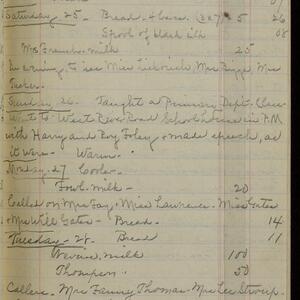 Saturday 25. Bread. 4 bars. (3 27) 5 26
Spool of black silk 08
Mrs Branch. milk 25
In evening to see Miss Mrs Mrs
Tucker.
Sunday 26. Taught a Primary Dept. Class
Went to West River Road School house in P.M.
with Harry and Roy Foley & made speech, as
it were. Warm.
Monday. 27 Cooler.
Fowl. milk. 20
Called on Mrs Gay, Miss Lawrence. Miss Gates
& Mrs Will Gates. Bread. 14
Tuesday. 28. Bread 11
milk 100
Thompson 50
Callers. Mrs Fanny Thomas. Mrs Lee Stroup.